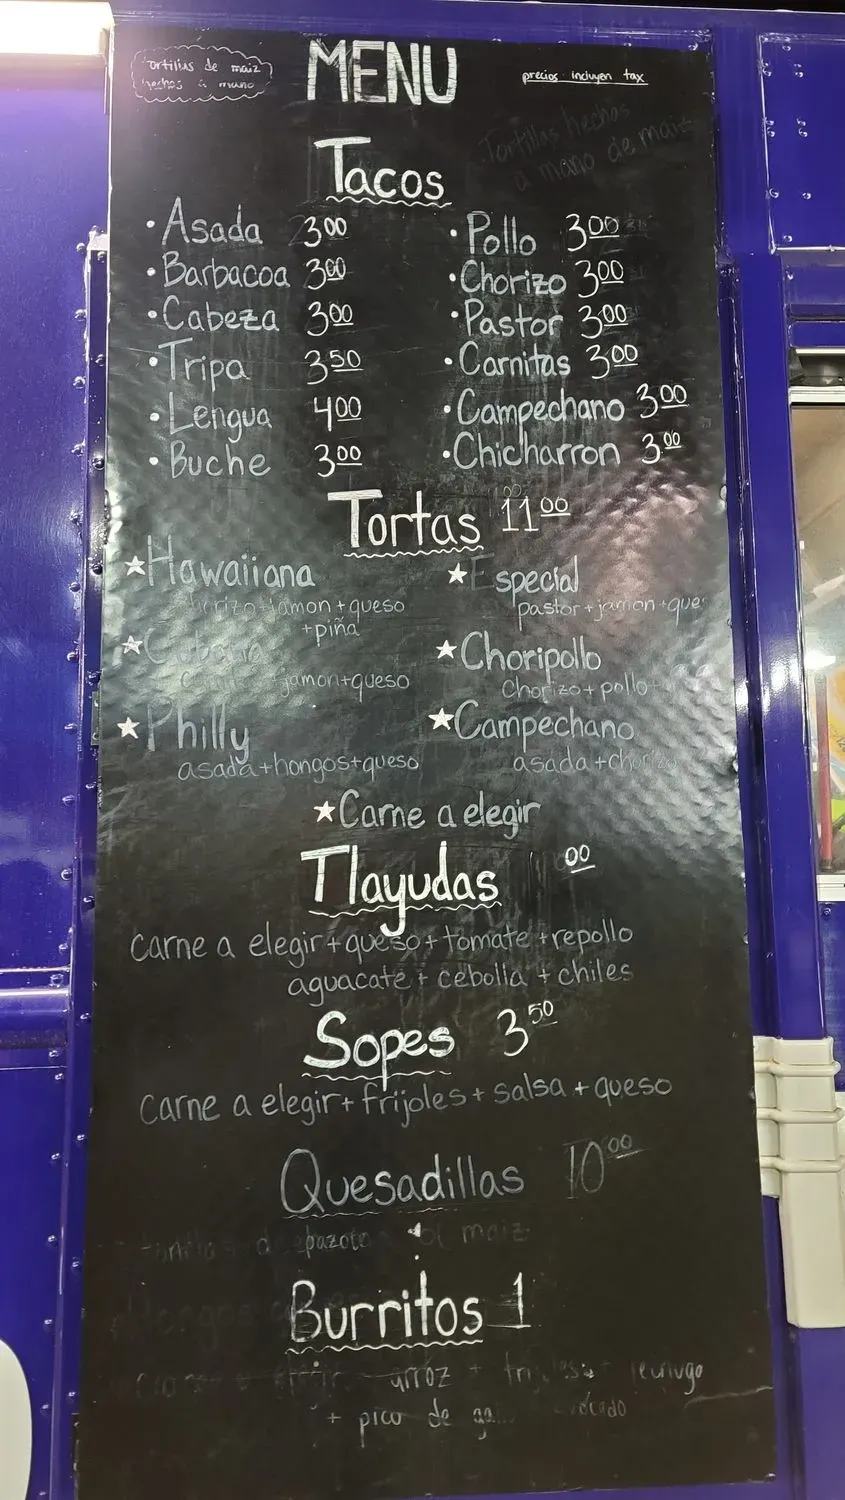 tortillas de maiz
hechas a mano
MENU
precios incluyen tax
Tortillas hechas
a mano de maiz
Tacos
• Asada 3.00
• Pollo 3.00
• Barbacoa 3.00
• Chorizo 3.00
• Cabeza 3.00
• Pastor 3.00
• Tripa 3.50
• Carnitas 3.00
• Lengua 4.00
• Campechano 3.00
• Buche 3.00
• Chicharron 3.00
Tortas 11.00
★ Hawaiiana
★ Especial
chorizo+jamon+queso
+piña
pastor+jamon+que
★ Cubana
★ Choripollo
+jamon+queso
chorizo+pollo+
★ Philly
★ Campechano
asada+hongos+queso
asada+chorizo
★ Carne a elegir
Tlayudas 00
carne a elegir+queso+tomate+repollo
aguacate+cebolla+chiles
Sopes 3.50
carne a elegir+frijoles+salsa+queso
Quesadillas 10.00
maiz
Burritos 1
arroz +
+ pico de